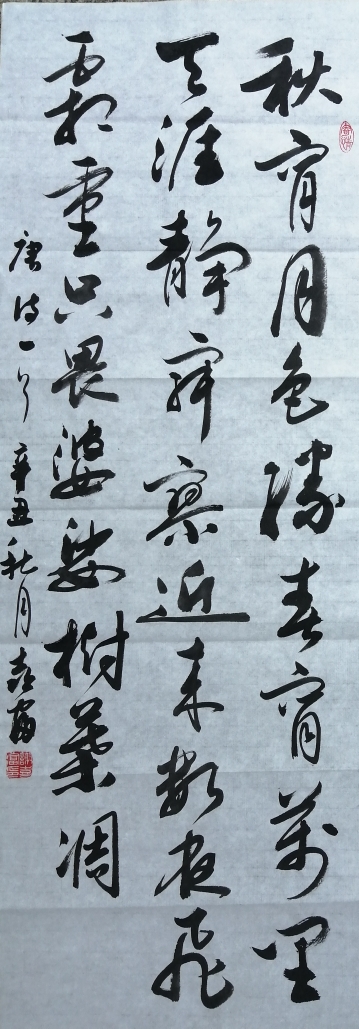 秋宵月色勝春宵萬里
天涯静寂寥近来數夜飛
霜重只畏婆娑樹葉凋
唐诗一首 辛丑秋月